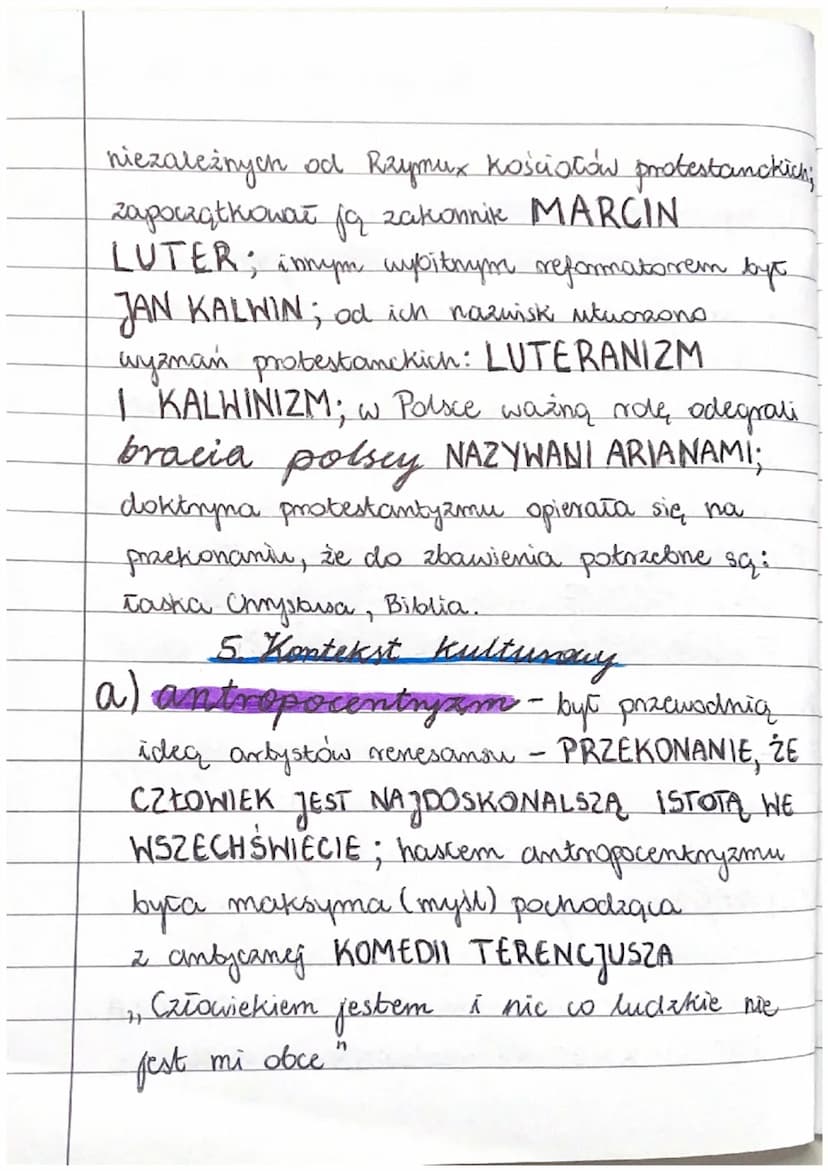 niezależnych od Rzymu x kościołów protestanckich;
zapoczątkował ją zakonnik MARCIN
LUTER; innym wybitnym reformatorem był
JAN KALWIN; od ich nazwisk utworzono
wyznań protestanckich: LUTERANIZM
I KALWINIZM; w Polsce ważną rolę odegrali
bracia polscy NAZYWANI ARIANAMI;
doktryna protestantyzmu opierała się na
przekonaniu, że do zbawienia potrzebne są:
łaska Chrystusa, Biblia.
5. Kontekst kulturowy
a) antropocentryzm - był przewodnią
ideą artystów renesansu - PRZEKONANIE, ŻE
CZŁOWIEK JEST NAJDOSKONALSZĄ ISTOTĄ WE
WSZECHŚWIECIE; hasłem antropocentryzmu
była maksyma (myśl) pochodząca
z antycznej KOMEDII TERENCJUSZA
„Człowiekiem jestem i nic co ludzkie nie
jest mi obce"